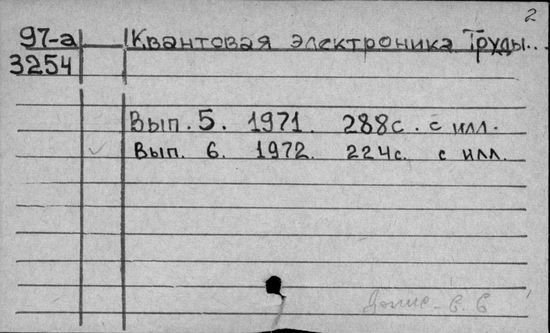 2
97-а Квантовая электроника Труды...
3254
Вып. 5. 1971. 288с. с илл.
Вып. 6. 1972. 224с. с илл.